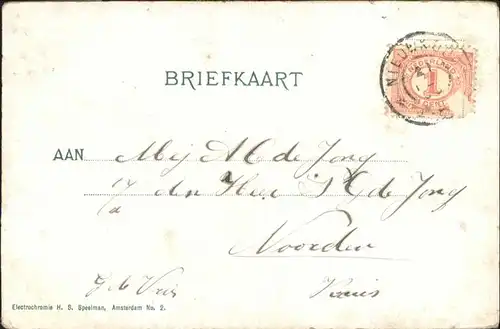 NIEUWKOOP
NEDERLAND
1
CENT
BRIEFKAART
AAN Mej A C de Jong
p/a den Heer J G de Jong
Noorden
G. de Vries
Electrochromie H. S. Speelman, Amsterdam No. 2.